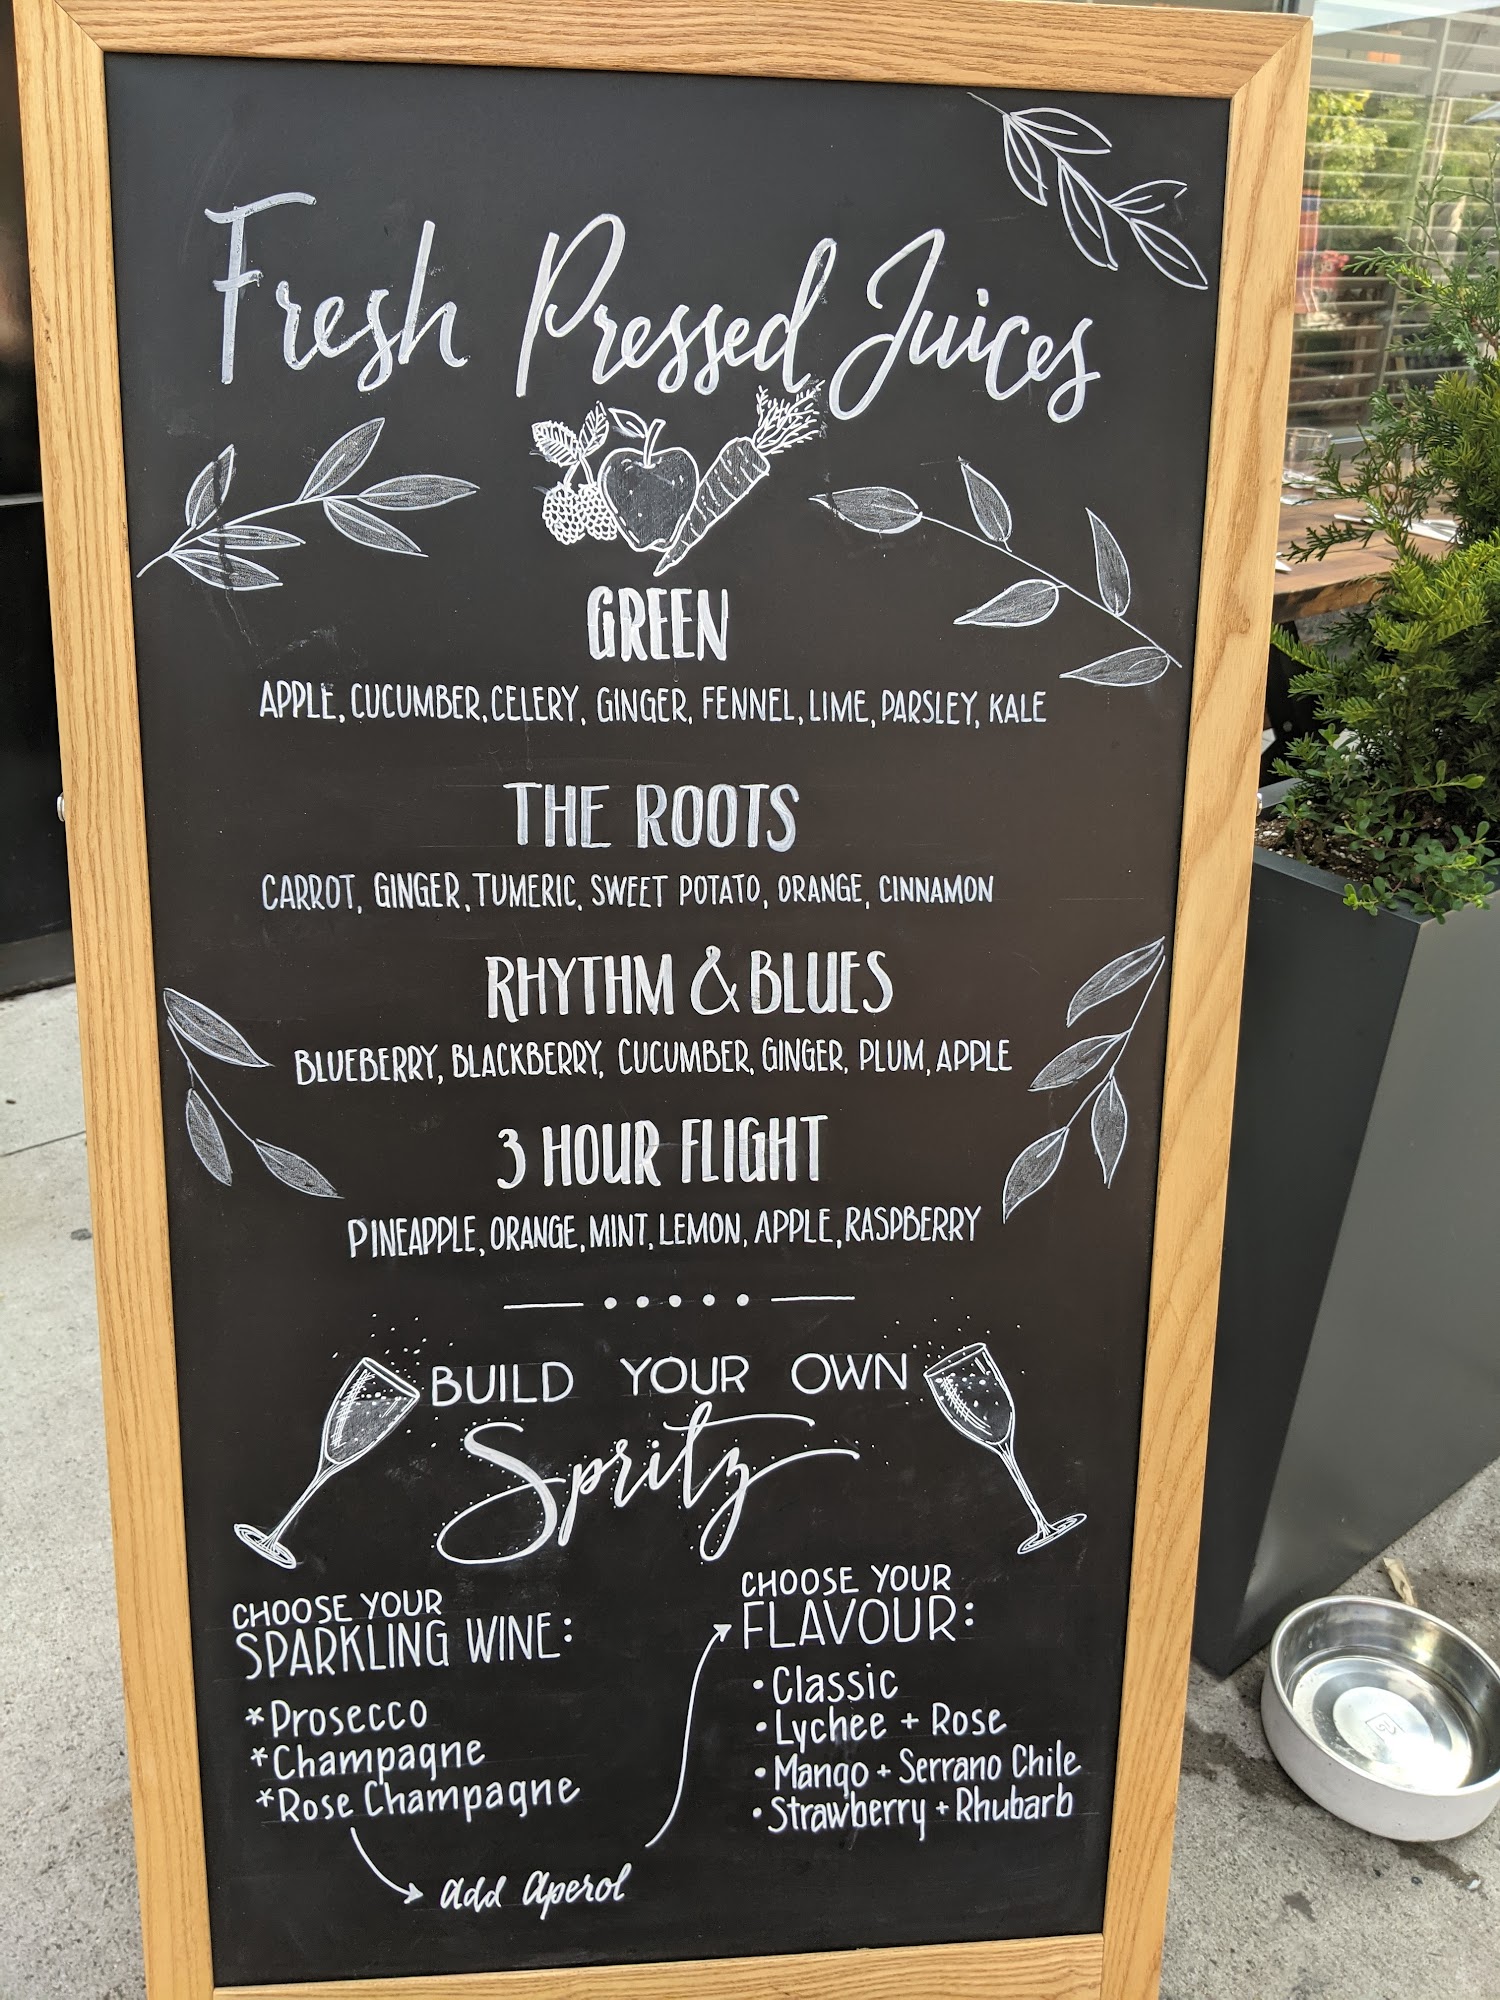 Fresh Pressed Juices
GREEN
APPLE, CUCUMBER, CELERY, GINGER, FENNEL, LIME, PARSLEY, KALE
THE ROOTS
CARROT, GINGER, TUMERIC, SWEET POTATO, ORANGE, CINNAMON
RHYTHM & BLUES
BLUEBERRY, BLACKBERRY, CUCUMBER, GINGER, PLUM, APPLE
3 HOUR FLIGHT
PINEAPPLE, ORANGE, MINT, LEMON, APPLE, RASPBERRY
BUILD YOUR OWN
Spritz
CHOOSE YOUR
SPARKLING WINE:
*Prosecco
*Champagne
*Rose Champagne
add Aperol
CHOOSE YOUR
FLAVOUR:
•Classic
•Lychee + Rose
•Mango + Serrano Chile
•Strawberry + Rhubarb